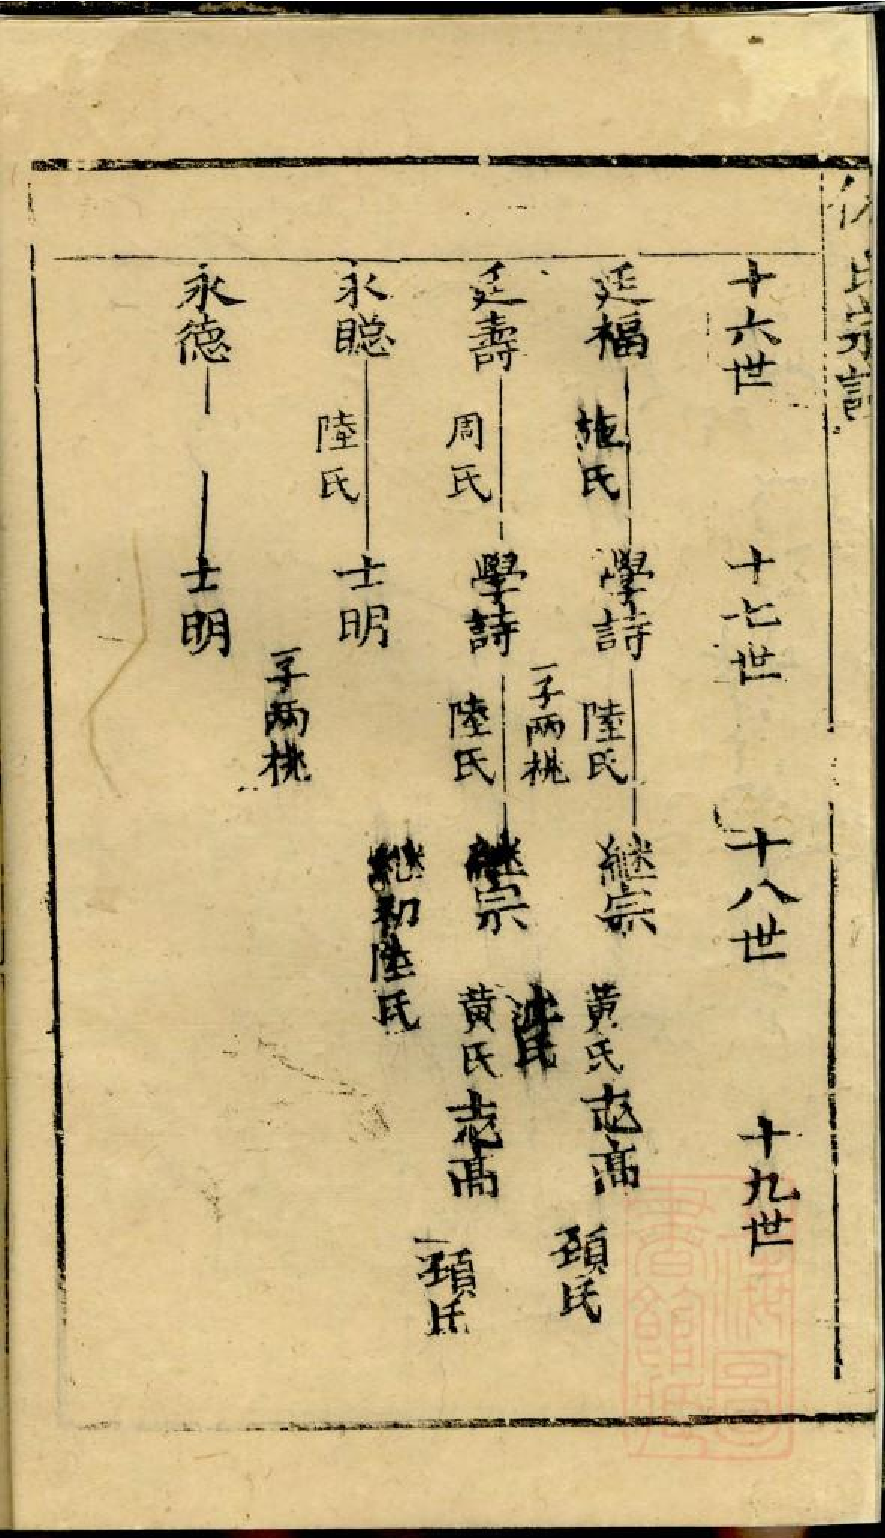 氏宗譜
十六世
十七世
十八世
十九世
廷福
施氏
學詩
陸氏
一子兩祧
繼宗
黃氏
沈氏
志高
頊氏
廷壽
周氏
學詩
陸氏
繼宗
黃氏
志高
頊氏
繼初陸氏
永聪
陸氏
士明
一子兩祧
永德
士明